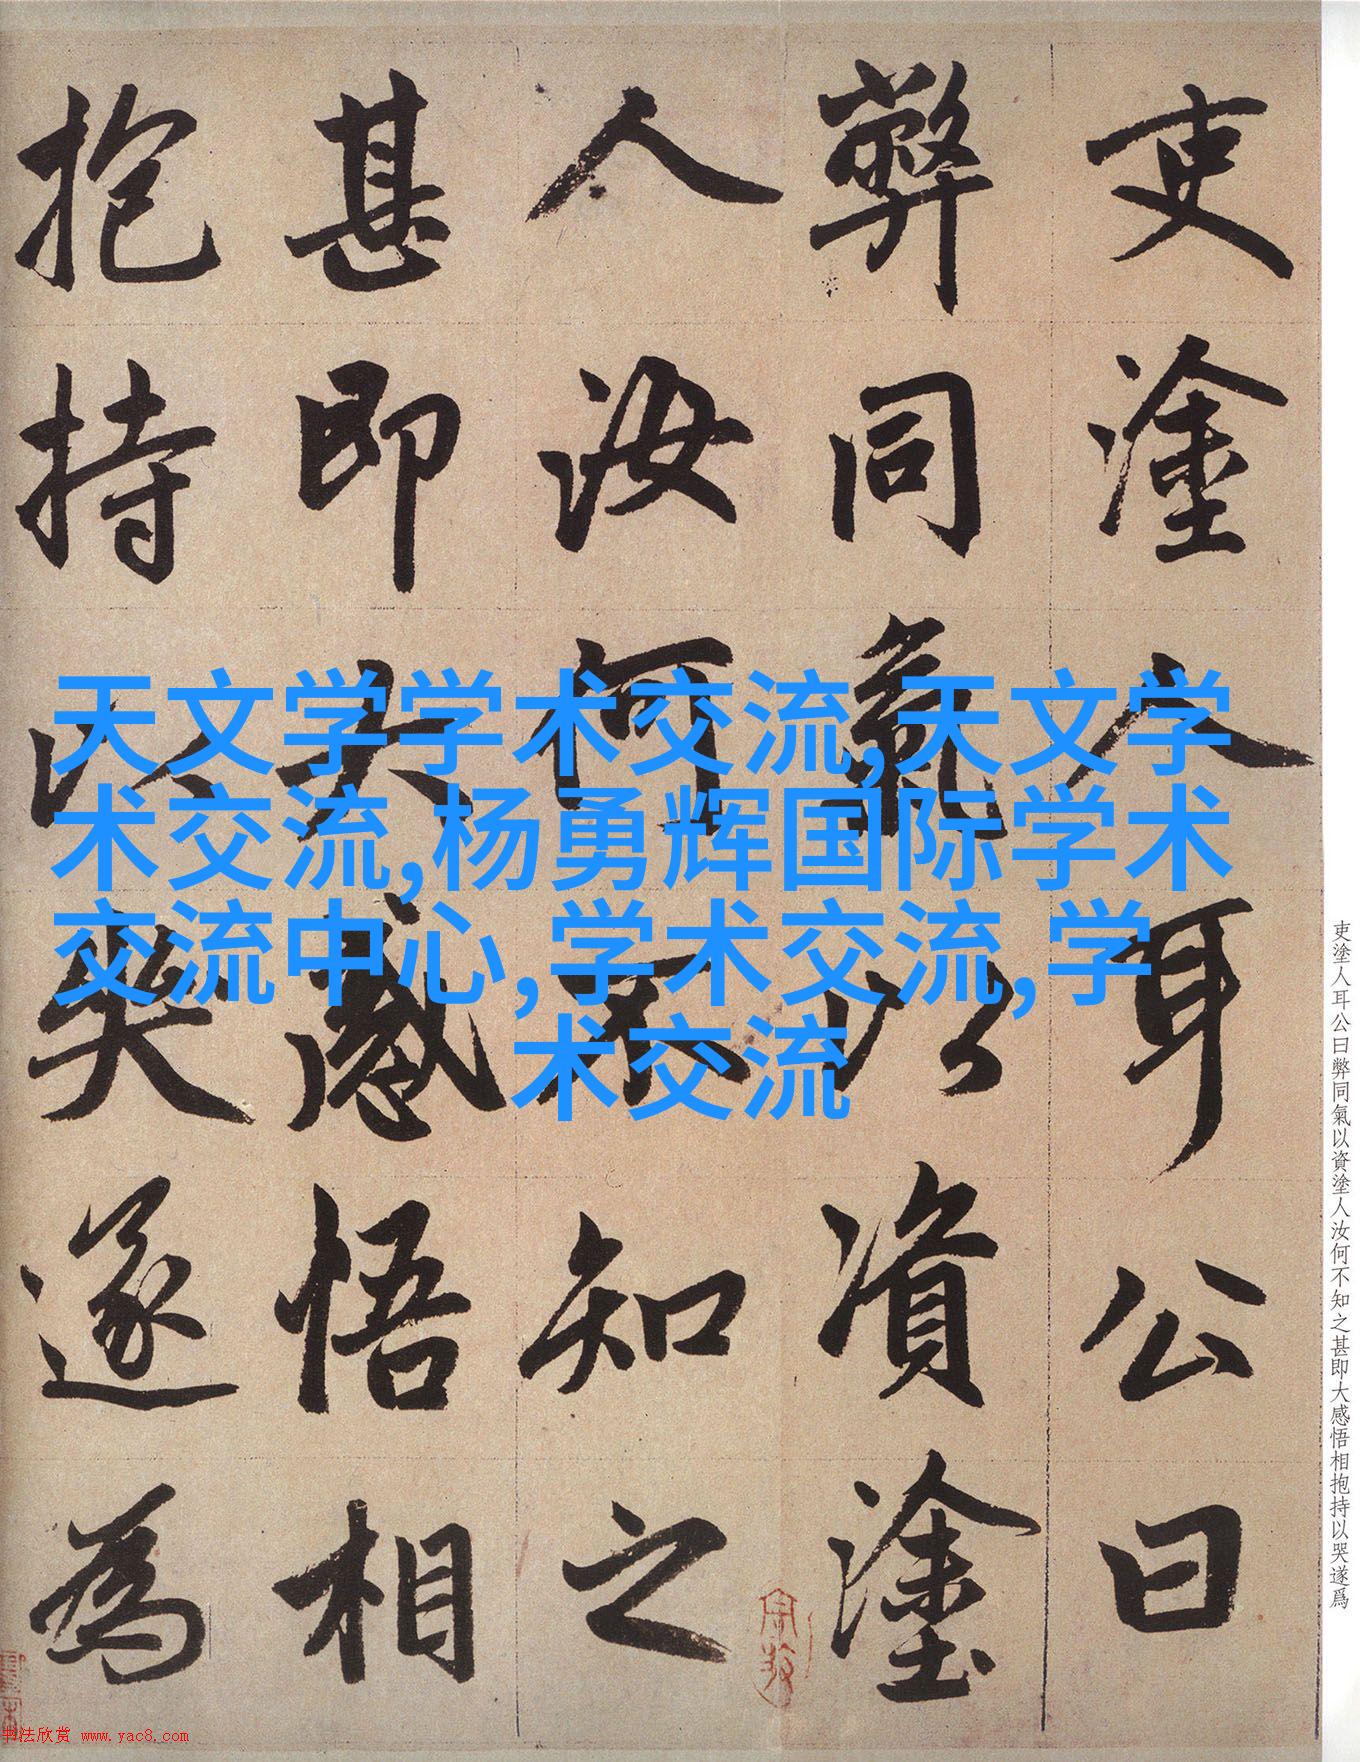 吏塗人耳公曰
弊同氣以資塗
人汝何不知之
甚即大感悟相
抱持以哭遂為
天文学学术交流,天文学
术交流,杨勇辉国际学术
交流中心,学术交流,学
术交流
吏塗人耳公曰弊同氣以資塗人汝何不知之甚即大感悟相抱持以哭遂爲
书法欣赏 www.yac8.com